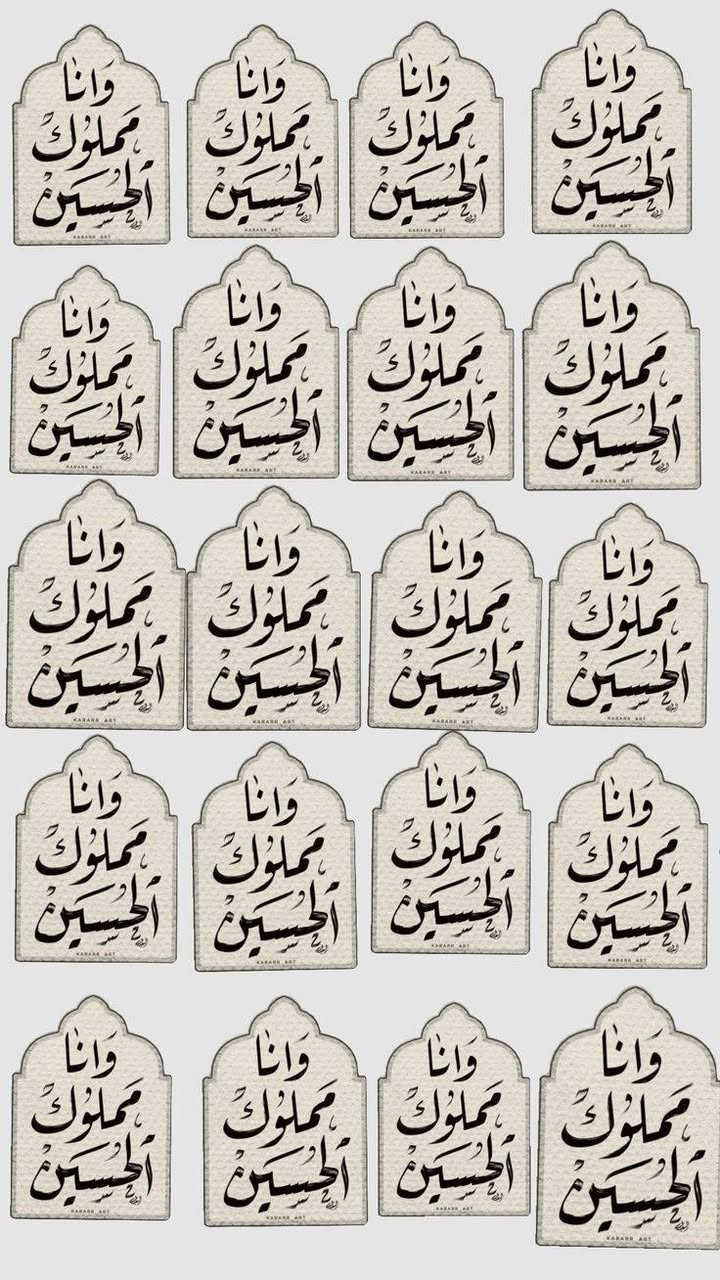 وَانَا
مَملوُك
الحُسين
KARARR ART
وَانَا
مَملوُك
الحُسين
KARARR ART
وَانَا
مَملوُك
الحُسين
KARARR ART
وَانَا
مَملوُك
الحُسين
KARARR ART
وَانَا
مَملوُك
الحُسين
KARARR ART
وَانَا
مَملوُك
الحُسين
KARARR ART
وَانَا
مَملوُك
الحُسين
KARARR ART
وَانَا
مَملوُك
الحُسين
KARARR ART
وَانَا
مَملوُك
الحُسين
KARARR ART
وَانَا
مَملوُك
الحُسين
KARARR ART
وَانَا
مَملوُك
الحُسين
KARARR ART
وَانَا
مَملوُك
الحُسين
KARARR ART
وَانَا
مَملوُك
الحُسين
KARARR ART
وَانَا
مَملوُك
الحُسين
KARARR ART
وَانَا
مَملوُك
الحُسين
KARARR ART
وَانَا
مَملوُك
الحُسين
KARARR ART
وَانَا
مَملوُك
الحُسين
KARARR ART
وَانَا
مَملوُك
الحُسين
KARARR ART
وَانَا
مَملوُك
الحُسين
KARARR ART
وَانَا
مَملوُك
الحُسين
KARARR ART